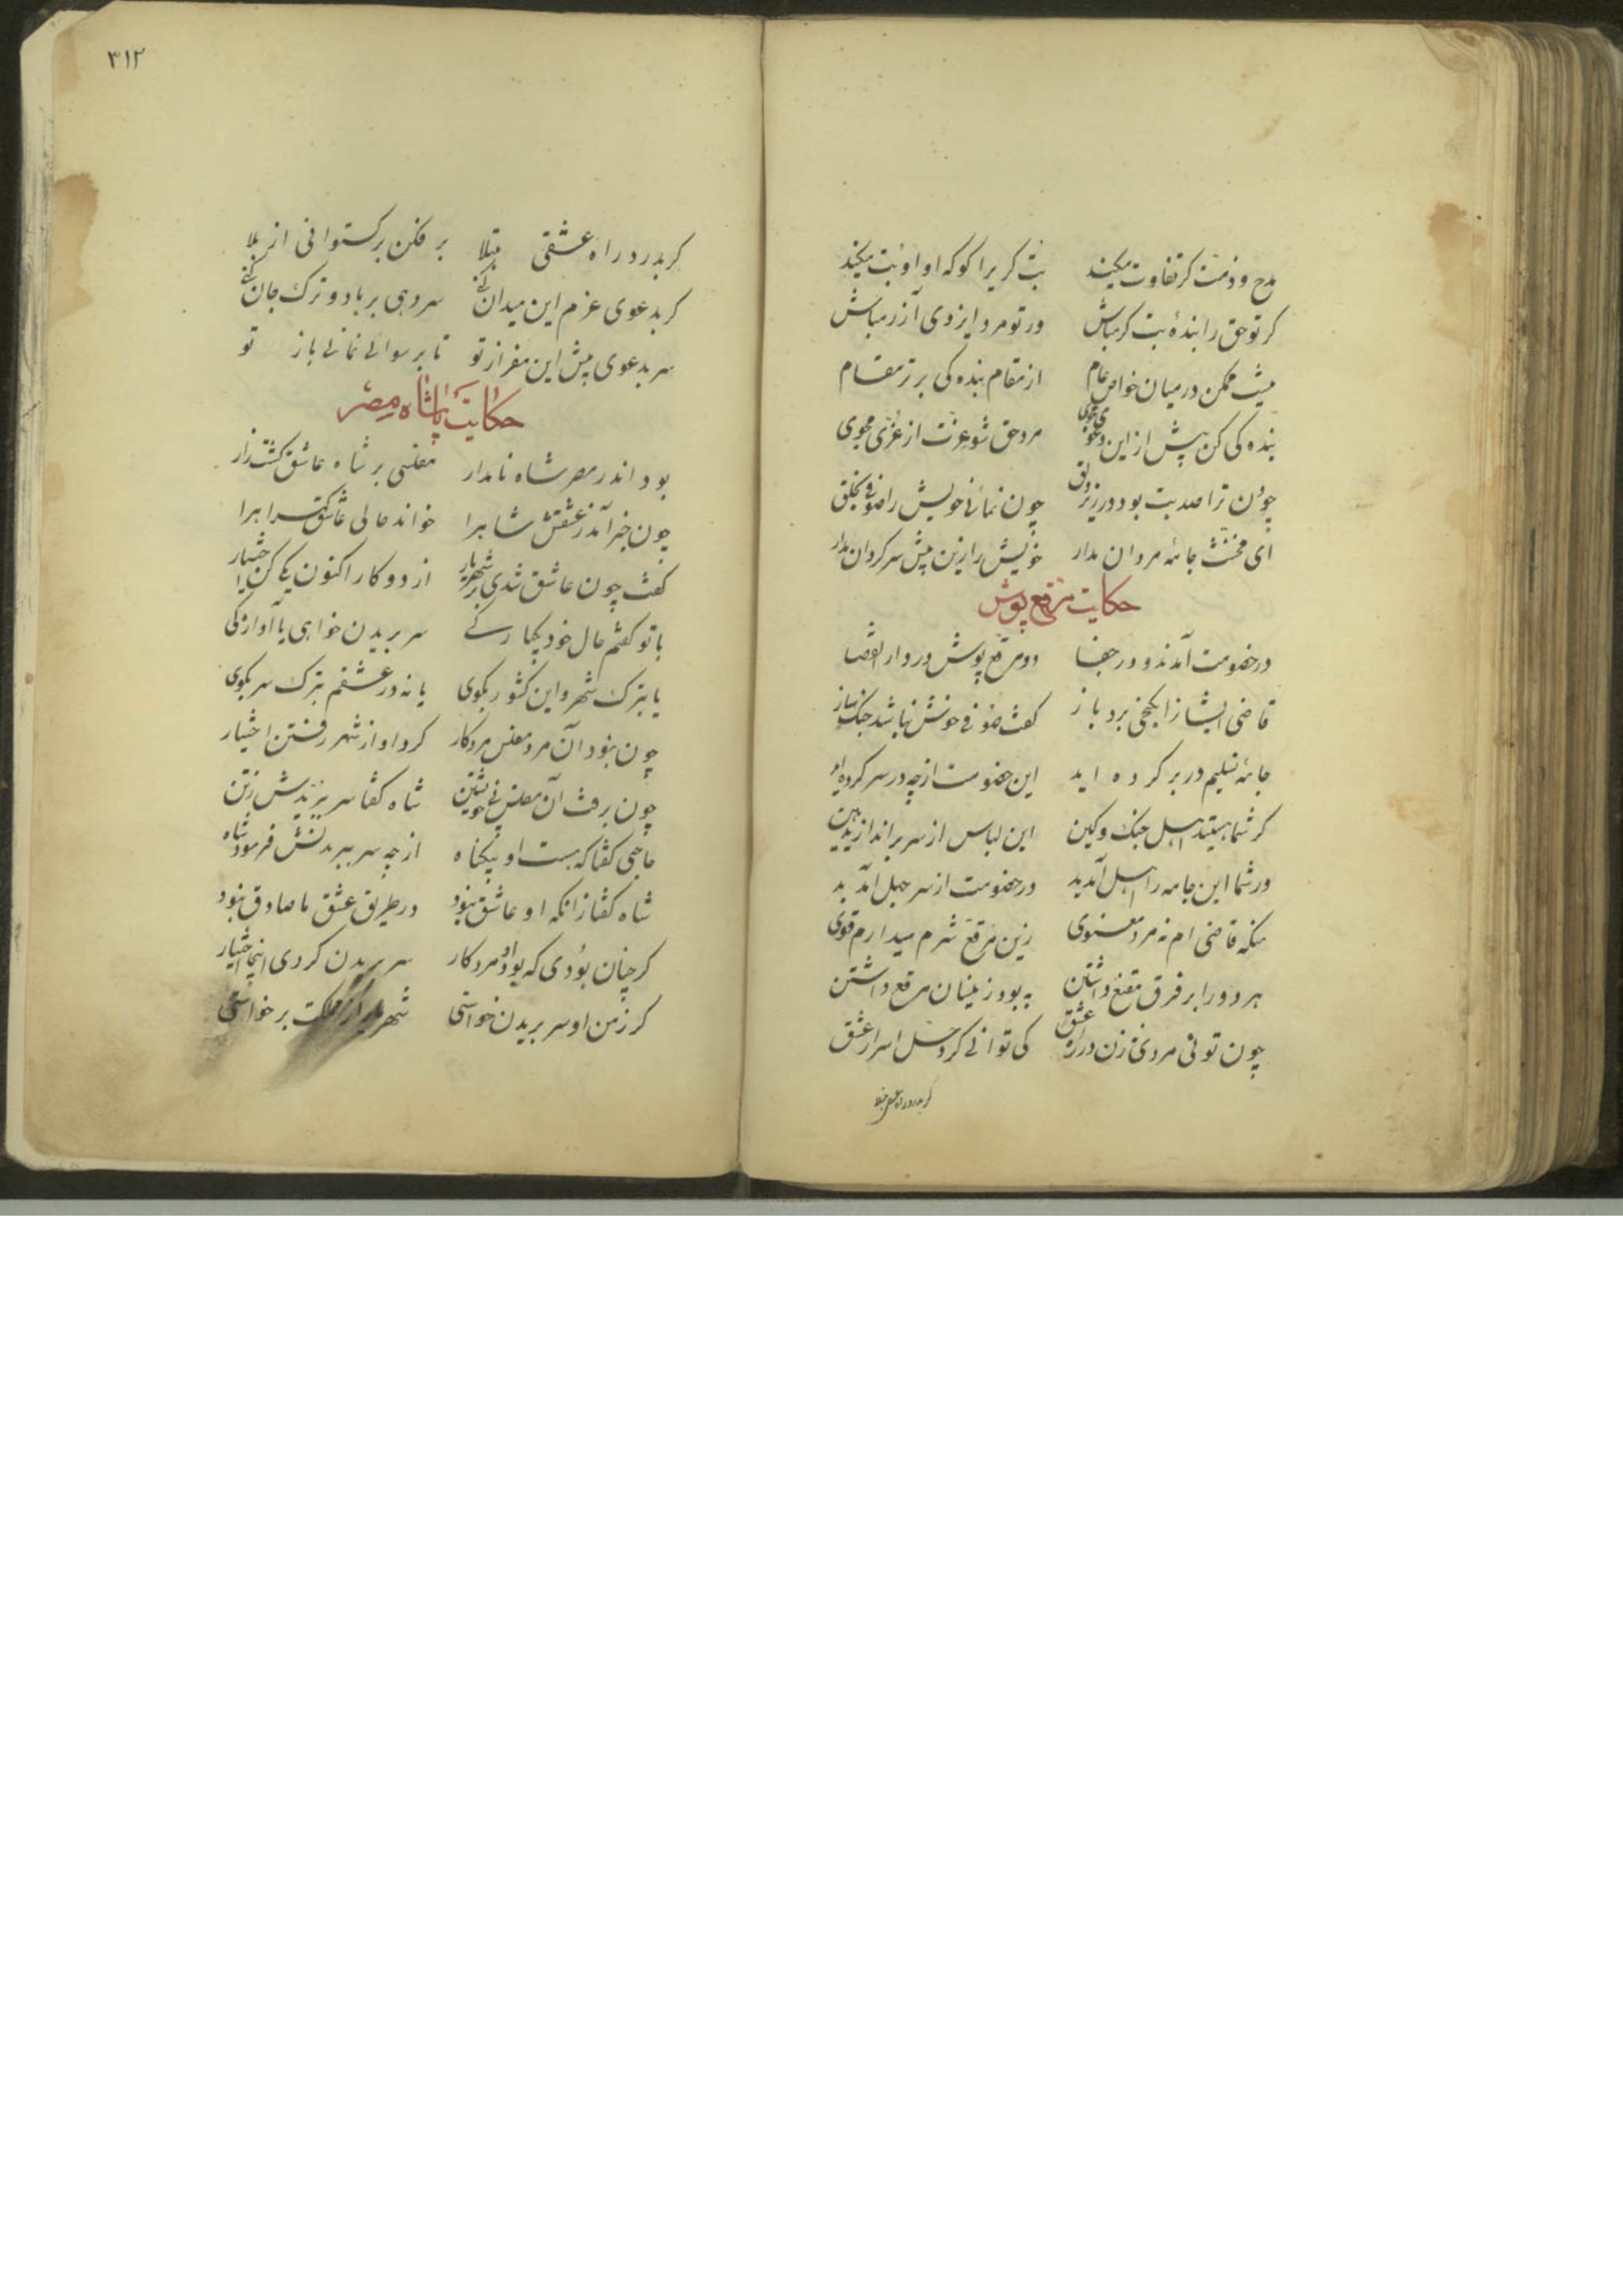 مدح و ذمت کر تفاوت میکند بت کری را کو که او او بت میکند
کر تو حق را بندهٔ بت کر مباش ور تو مرد ایزدی آزر مباش
نیست ممکن در میان خواص عام از مقام بنده کی برتر مقام
بنده کی کن پیش از این دعوی مجوی مرد حق شو عزت از عزی مجوی
چون ترا صد بت بود در زیر دلق چون نمائی خویش را صوفی بخلق
ای مخنث جامهٔ مردان مدار خویش را زین پیش سرکردان مدار
حکایت مرقع پوش
در خصومت آمدند و در جفا دو مرقع پوش در دار القضا
قاضی ایشانرا بکنجی برد باز کفت صوفی خوش نباشد جنک ساز
جامهٔ تسلیم در بر کرده اید این خصومت از چه در سر کرده اید
کر شما هستید اهل جنک و کین این لباس از سر براندازید هین
ور شما این جامه را اهل آمدید در خصومت از سر جهل آمدید
منکه قاضی ام نه مرد معنوی زین مرقع شرم میدارم قوی
هر دو را بر فرق مقنع داشتن به بود زینسان مرقع داشتن
چون تو نی مردی نه زن در راه عشق کی توانی کرد حل اسرار عشق
کر بدرد راه عشقی مبتلا
۳۱۲
کر بدرد راه عشقی مبتلا بر فکن برکستوانی از بلا
کر بدعوی عزم این میدان کنی سر دهی بر باد و ترک جان کنی
سر بدعوی پیش این مفراز تو تا برسوائی نمانی باز تو
حکایت پاشاه مصر
بود اندر مصر شاه نامدار مفلسی بر شاه عاشق کشت زار
چون خبر آمد ز عشقش شاه را خواند حالی عاشق کمراه را
کفت چون عاشق شدی بر شهریار از دو کار اکنون یکی کن اختیار
با تو کفتم حال خود یکبارکی سر بریدن خواهی یا آوارکی
یا بترک شهر و این کشور بکوی یا نه در عشقم بترک سر بکوی
چون نبود آن مرد مفلس مرد کار کرد او از شهر رفتن اختیار
چون برفت آن مفلس بی خویشتن شاه کفتا سر بریدش ز تن
حاجبی کفتا که هست او بیکناه از چه سر ببریدنش فرمود شاه
شاه کفتا زانکه او عاشق نبود در طریق عشق ما صادق نبود
کر چنان بودی که بود او مرد کار سر بریدن کردی اینجا اختیار
کر ز من او سر بریدن خواستی شهریار از مملکت برخواستی